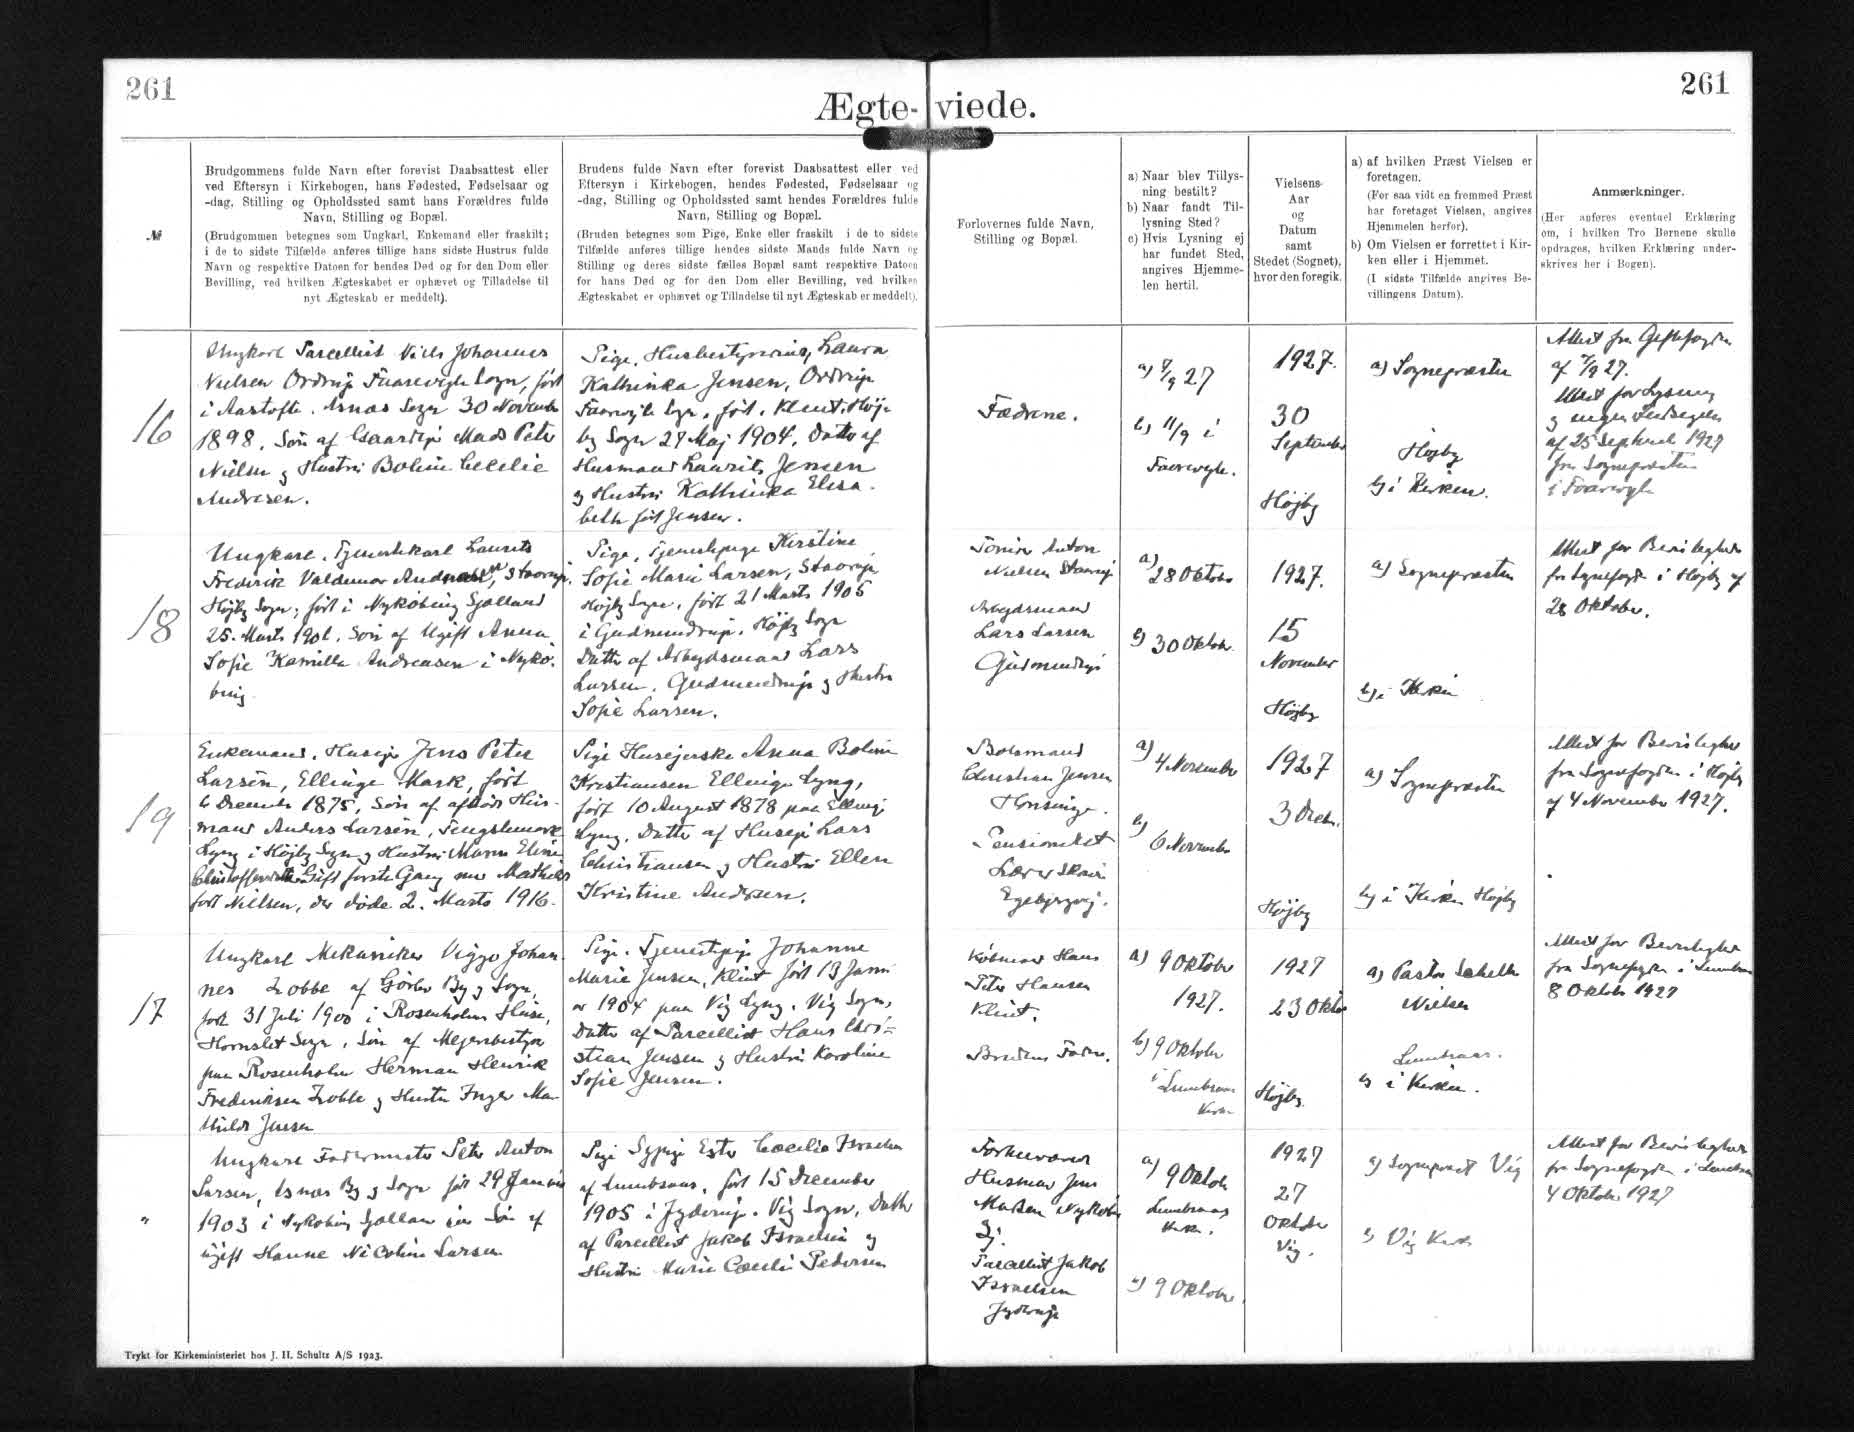 261
261
Ægte-viede.
№
Brudgommens fulde Navn efter forevist Daabsattest eller
ved Eftersyn i Kirkebogen, hans Fødested, Fødselsaar og
-dag, Stilling og Opholdssted samt hans Forældres fulde
Navn, Stilling og Bopæl.
(Brudgommen betegnes som Ungkarl, Enkemand eller fraskilt;
i de to sidste Tilfælde anføres tillige hans sidste Hustrus fulde
Navn og respektive Datoen for hendes Død og for den Dom eller
Bevilling, ved hvilken Ægteskabet er ophævet og Tilladelse til
nyt Ægteskab er meddelt).
Brudens fulde Navn efter forevist Daabsattest eller ved
Eftersyn i Kirkebogen, hendes Fødested, Fødselsaar og
-dag, Stilling og Opholdssted samt hendes Forældres fulde
Navn, Stilling og Bopæl.
(Bruden betegnes som Pige, Enke eller fraskilt i de to sidste
Tilfælde anføres tillige hendes sidste Mands fulde Navn og
Stilling og deres sidste fælles Bopæl samt respektive Datoen
for hans Død og for den Dom eller Bevilling, ved hvilken
Ægteskabet er ophævet og Tilladelse til nyt Ægteskab er meddelt).
Forlovernes fulde Navn,
Stilling og Bopæl.
a) Naar blev Tillys-
ning bestilt?
b) Naar fandt Til-
lysning Sted?
c) Hvis Lysning ej
har fundet Sted,
angives Hjemme-
len hertil.
Vielsens-
Aar
og
Datum
samt
Stedet (Sognet),
hvor den foregik.
a) af hvilken Præst Vielsen er
foretagen.
(For saa vidt en fremmed Præst
har foretaget Vielsen, angives
Hjemmelen herfor).
b) Om Vielsen er forrettet i Kir-
ken eller i Hjemmet.
(I sidste Tilfælde angives Be-
villingens Datum).
Anmærkninger.
(Her anføres eventuel Erklæring
om, i hvilken Tro Børnene skulle
opdrages, hvilken Erklæring under-
skrives her i Bogen).
16
Ungkarl Parcellist Niels Johannes
Nielsen Ordrup Faarevejle Sogn, født
i Aastofte. Asnæs Sogn 30 November
1898. Søn af Mads Peter
Nielsen og Hustru Boline Cecilie
Andresen.
Pige, Husbestyrerinde, Laura
Kathinka Jensen, Ordrup
Faarevejle Sogn, født. Klint. Høj-
by Sogn 27 Maj 1904. Datter af
Husmand Laurits Jensen
og Hustru Kathinka Elisa-
beth født Jensen.
Fædrene.
a) 7/9 27
b) 11/9 i
Faarevejle.
1927.
30
September
Højby
a) Sognepræsten
Højby
b) i Kirken.
Attest fra Giftefogden
af 7/9 27.
Attest for Lysning
og ingen Indsigelse
af 25 September 1927
fra Sognepræsten
i Faarevejle
18
Ungkarl. Tjenestekarl Laurits
Frederik Valdemar Andreasen, Staarup.
Højby Sogn; født i Nykøbing Sjælland
25. Marts 1901. Søn af Ugift Anna
Sofie Kamilla Andreasen i Nykø-
bing.
Pige, Tjenestepige Kirstine
Sofie Marie Larsen, Staarup
Højby Sogn, født 21 Marts 1905
i Gudmundrup. Højby Sogn
Datter af Arbejdsmand Lars
Larsen. Gudmundrup og Hustru
Sofie Larsen.
Anton
Nielsen Staarup
Arbejdsmand
Lars Larsen
Gudmundrup
a) 28 Oktober
b) 30 Oktober
1927.
15
November
Højby
a) Sognepræsten
b) i Kirken
Attest for Berettigelse
fra Sognefogden i Højby af
28 Oktober.
19
Enkemand. Husejer Jens Peter
Larsen, Ellinge Mark, født
6 December 1875. Søn af afdøde Hus-
mand Anders Larsen, Tengslemark
Lyng i Højby Sogn og Hustru Maren Eline
Christoffersdatter. Gift første Gang med Mathilde
født Nielsen, der døde 2. Marts 1916.
Pige Husejerske Anna Boline
Kristiansen Ellinge Lyng,
født 10 August 1878 paa Ellinge
Lyng. Datter af Husejer Lars
Christiansen og Hustru Ellen
Kirstine Andersen.
Bolsmand
Christian Jensen
Hønsinge.
Pensioneret
Lærer Skou
Egebjergvej.
a) 4 November
b) 6 November
1927
3 Decbr.
Højby
a) Sognepræsten
b) i Kirken Højby
Attest for Berettigelse
fra Sognefogden i Højby
af 4 November 1927.
17
Ungkarl Mekaniker Viggo Johan-
nes Zobbe af Gørlev By og Sogn,
født 31 Juli 1900 i Rosenholm Huse,
Hornslet Sogn, Søn af Mejeribestyrer
paa Rosenholm Herman Henrik
Frederiksen Zobbe og Hustru Inger Ma-
thilde Jensen
Pige. Tjenestepige Johanne
Marie Jensen, Klint født 13 Janu-
ar 1904 paa Vig Lyng. Vig Sogn,
Datter af Parcellist Hans Chri-
stian Jensen og Hustru Karoline
Sofie Jensen.
Købmand Hans
Peter Hansen
Klint.
Brudens Fader.
a) 9 Oktober
1927.
b) 9 Oktober
i Lumbsaas
Kirke
1927
23 Oktober
Højby.
a) Pastor Schelle
Nielsen
Lumbsaas.
b) i Kirken.
Attest for Berettigelse
fra Sognefogden i Lumbsaas
8 Oktober 1927
"
Ungkarl Fodermester Peter Anton
Larsen, Asnæs By og Sogn født 29 Januar
1903 i Nykøbing Sjælland Søn af
ugift Hanne Nicoline Larsen
Pige Sypige Ester Cæcilie Israelsen
af Lumbsaas, født 15 December
1905 i Jyderup. Vig Sogn, Datter
af Parcellist Jakob Israelsen og
Hustru Marie Cæcilie Pedersen
Forhenværende
Husmand Jens
Madsen Nykøbing
Sj.
Parcellist Jakob
Israelsen
Jyderup
a) 9 Oktob
Lumbsaas
Kirke.
b) 9 Oktober.
1927
27
Oktober
Vig.
a) Sognepræst Vig
b) Vig Kirke
Attest for Berettigelse
fra Sognefogden i Lumbsaas
4 Oktober 1927
Trykt for Kirkeministeriet hos J. H. Schultz A/S 1923.